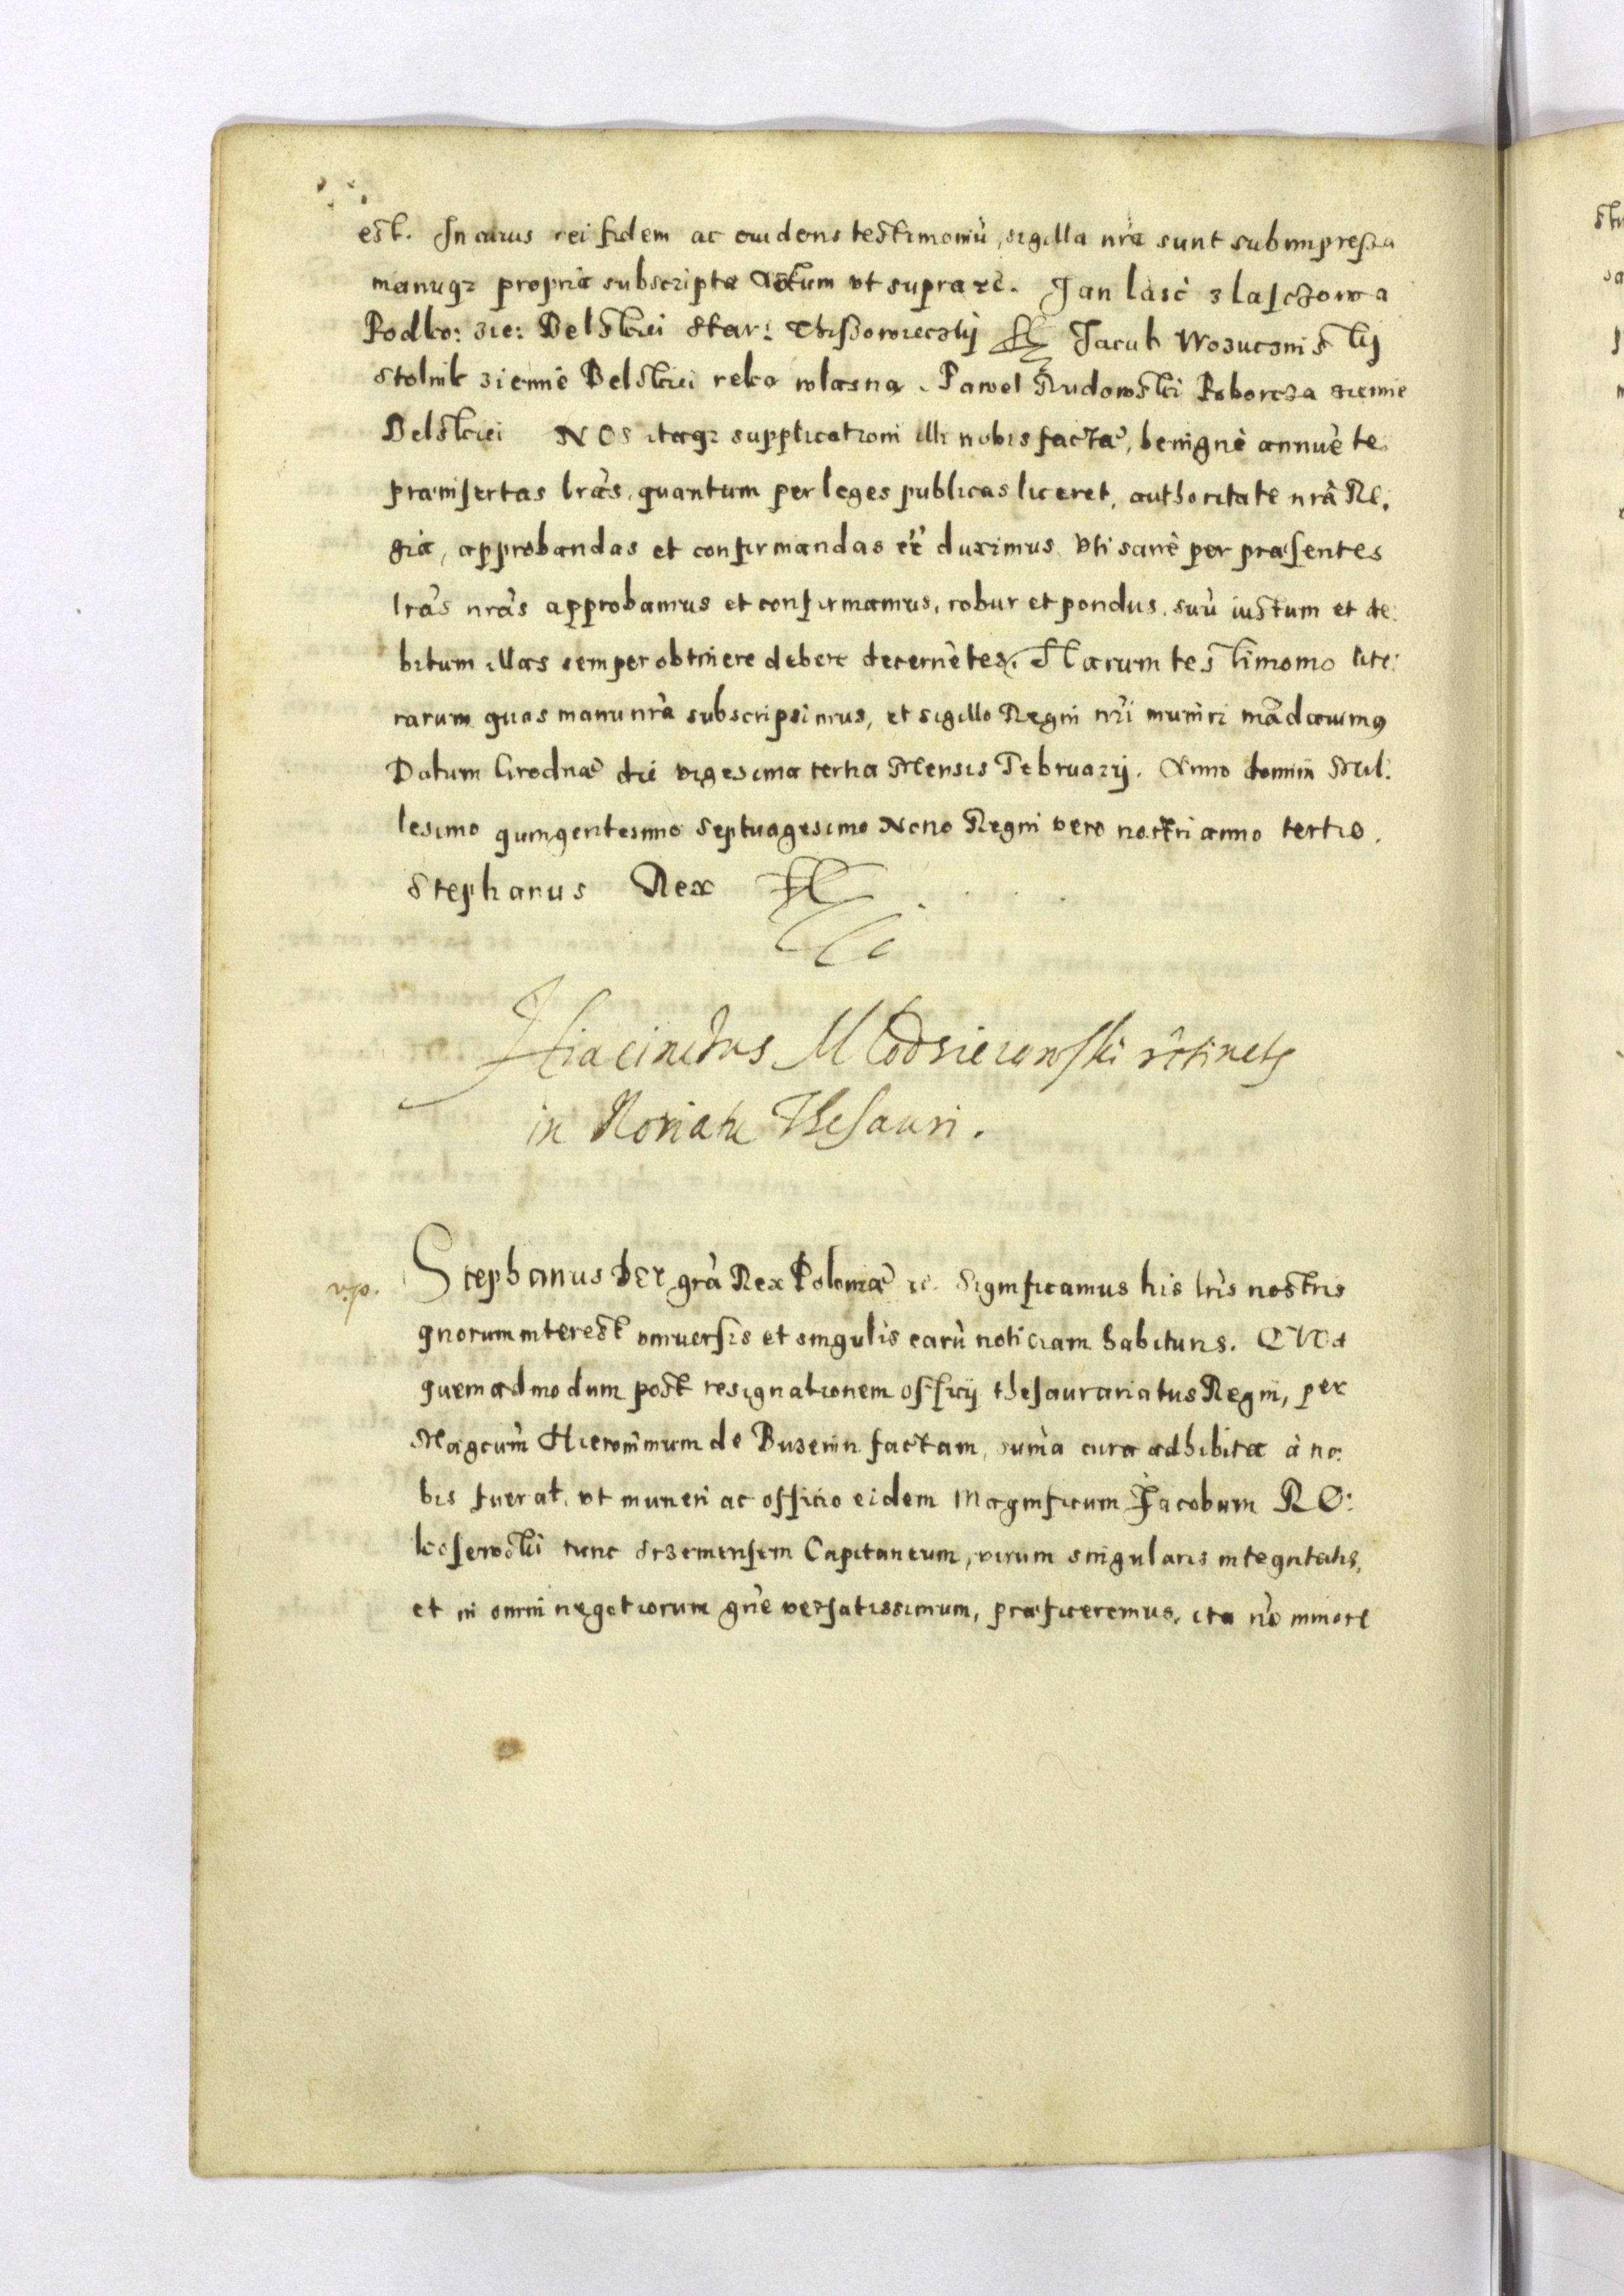 est. In cuius rei fidem ac euidens testimoniũ, sigilla nrã sunt subimpressa
manuqz propria subscripta Actum vt supra etc. Jan lasč z lasczowa
Podko: zie: Belskiei Star: Jacub Wozuczinskij
Stolnik ziemie Belskiei reka wlasna. Pawel Rudowski Poborcza ziemie
Belskiei NOS itaqz supplicationi illi nobis factæ, benignè annuẽte
præinsertas lrãs, quantum per leges publicas liceret, authoritate nrã Re.
gia, approbandas et confirmandas eẽ duximus Vti sanè per præsentes
lrãs nrãs approbamus et confirmamus, robur et pondus suũ iustum et de:
bitum illas semper obtinere debere decernẽtes. Harum testimonio lite:
rarum quas manu nrã subscripsimus, et sigillo Regni nrĩ muniri mãdauimus
Datum Grodnæ die vigesima tertia Mensis Februarij. Anno domini Mil.
lesimo quingentesimo Septuagesimo Nono Regni vero nostri anno tertio.
Stephanus Rex
Hiacinctus Mlodzieiowski
in Thesauri.
Stephanus Dei grã Rex Poloniæ etc. Significamus his lrĩs nostris
quorum interest vniuersis et singulis earũ noticiam habituris. QVOd
quemadmodum post resignationem officij thesaurariatus Regni, per
Magcum Hieronimum de Buzenin factam, sum̃a cura adhibita à no:
bis fuerat, vt muneri ac officio eidem Magnificum Jacobum RO:
kosewski tunc Srzemensem Capitaneum, virum singularis integritatis,
et in omni negotiorum gñe versatissimum, præficeremus, ita nõ minore